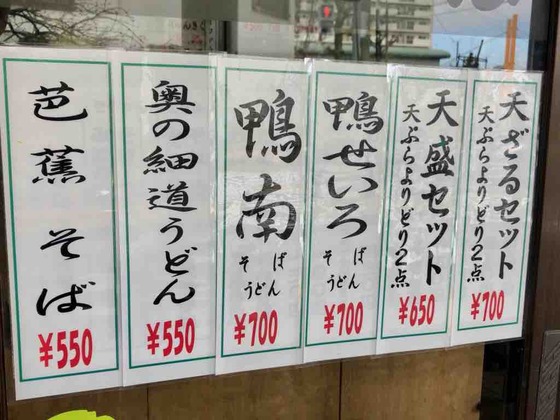 天ざるセット
天ぷらよりどり2点
¥700
天盛セット
天ぷらよりどり2点
¥650
鴨せいろ
そば
うどん
¥700
鴨南
そば
うどん
¥700
奥の細道うどん
¥550
芭蕉そば
¥550